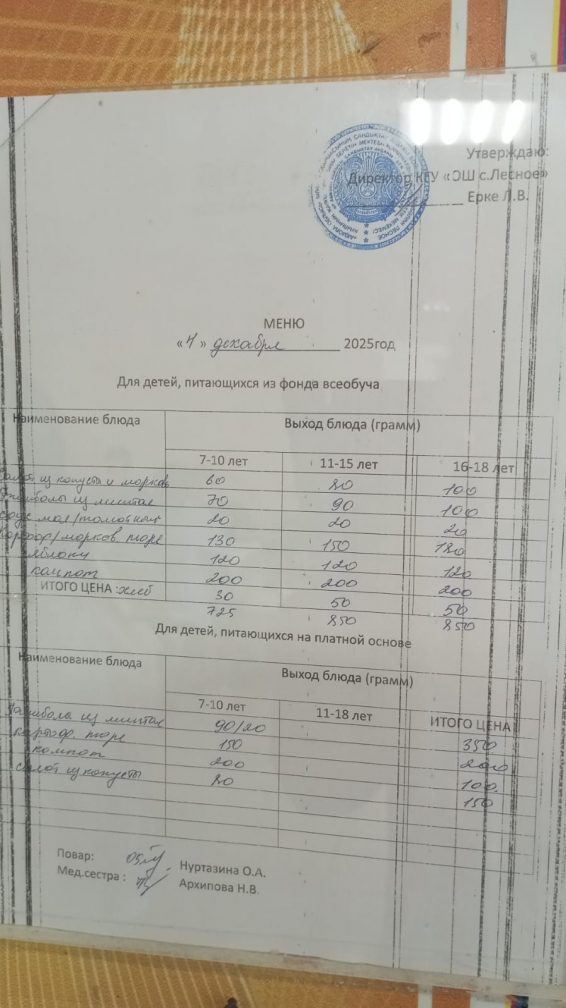 Утверждаю:
Директор КГУ «ОШ с.Лесное»
Ерке Л.В.
МЕНЮ
«4» декабря 2025год
Для детей, питающихся из фонда всеобуча
Наименование блюда Выход блюда (грамм)
7-10 лет 11-15 лет 16-18 лет
салат из капусты и морков 60 80 100
из минтая 70 90 100
соус 20 20 20
морков. пюре 130 150 180
яблоки 120 120 120
компот 200 200 200
ИТОГО ЦЕНА: хлеб 30 50 50
725 850 850
Для детей, питающихся на платной основе
Наименование блюда Выход блюда (грамм)
7-10 лет 11-18 лет ИТОГО ЦЕНА
из минтая 90/20 350
картоф. пюре 150 200
компот 200 100
салат из капусты 80 150
Повар: Нуртазина О.А.
Мед.сестра : Архипова Н.В.